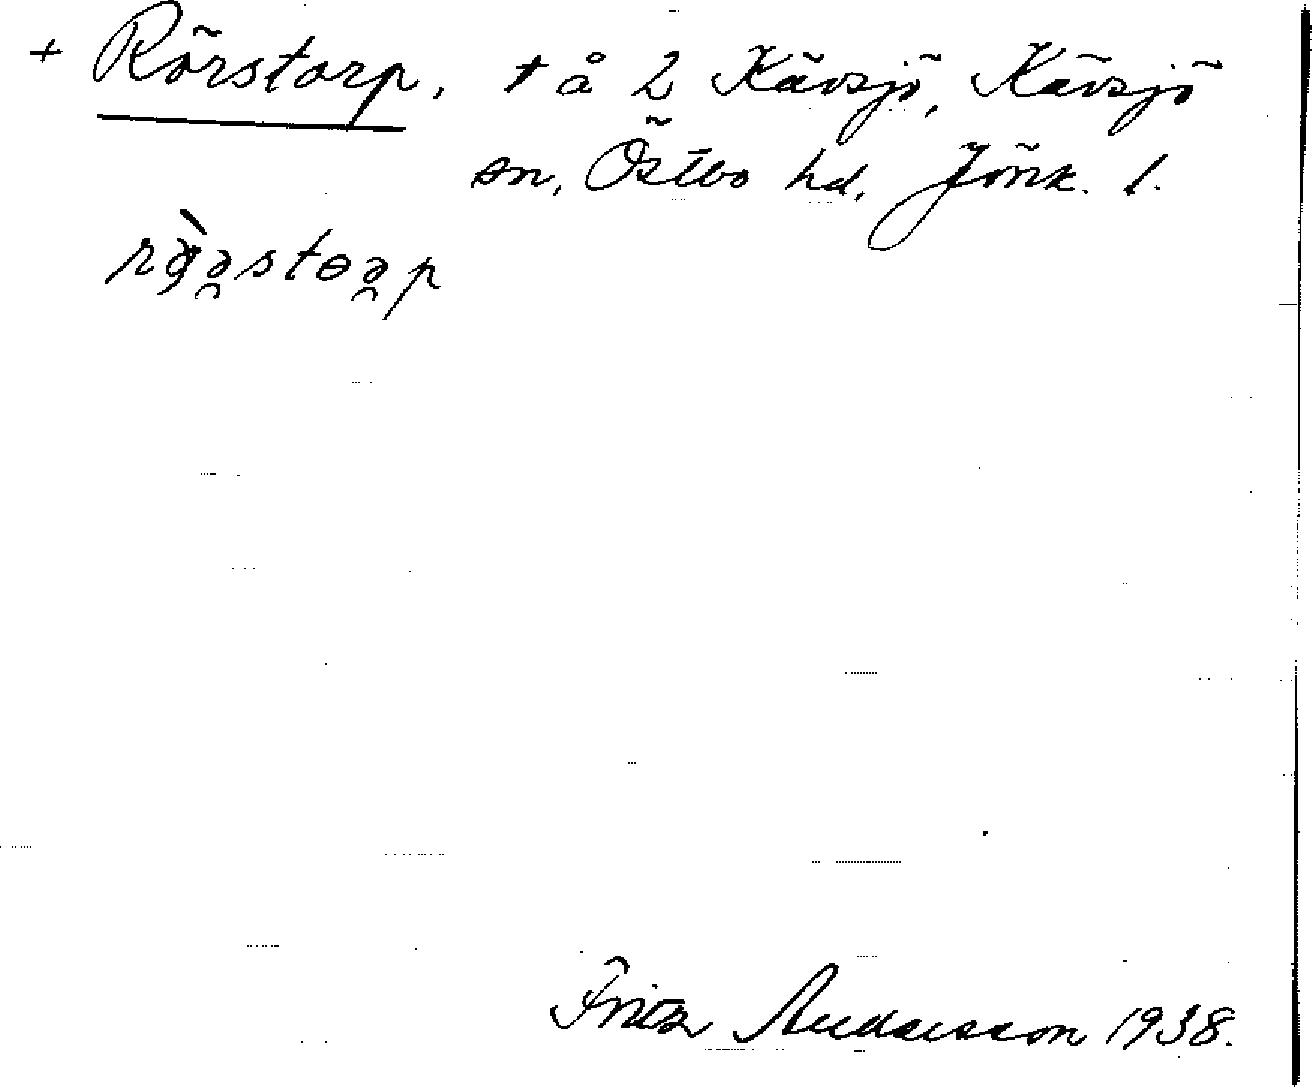 + Rörstorp, t å 2 Kävsjö, Kävsjö
sn, Östbo hd, Jönk. l.
Fritz Andersson 1938.